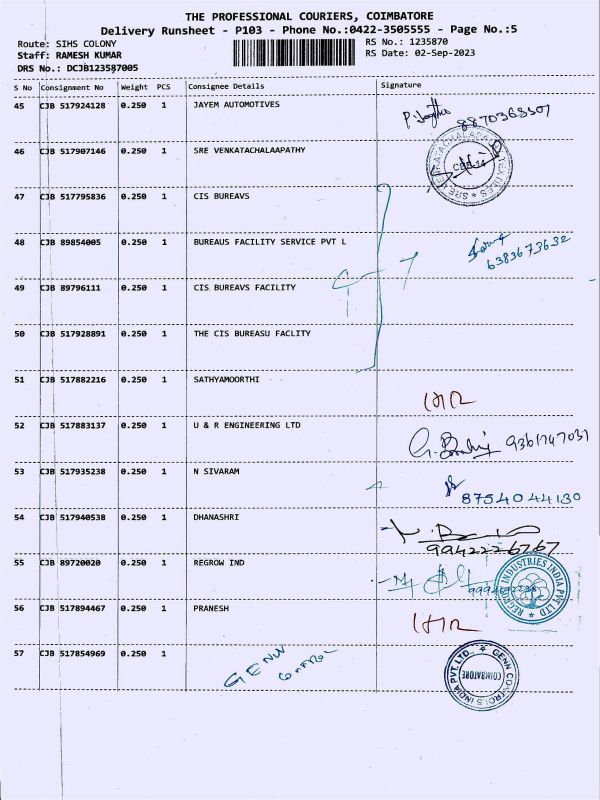 THE PROFESSIONAL COURIERS, COIMBATORE
Delivery Runsheet - P103 - Phone No.:0422-3505555 - Page No.:5
Route: SIHS COLONY RS No.: 1235870
Staff: RAMESH KUMAR RS Date: 02-Sep-2023
DRS No.: DCJB123587005
S No Consignment No Weight PCS Consignee Details Signature
45 CJB 517924128 0.250 1 JAYEM AUTOMOTIVES
8870368507
46 CJB 517907146 0.250 1 SRE VENKATACHALAAPATHY
47 CJB 517795836 0.250 1 CIS BUREAVS
48 CJB 89854005 0.250 1 BUREAUS FACILITY SERVICE PVT L
6383673632
49 CJB 89796111 0.250 1 CIS BUREAVS FACILITY
50 CJB 517928891 0.250 1 THE CIS BUREASU FACLITY
51 CJB 517882216 0.250 1 SATHYAMOORTHI
52 CJB 517883137 0.250 1 U & R ENGINEERING LTD
9361747031
53 CJB 517935238 0.250 1 N SIVARAM
8754044130
54 CJB 517940538 0.250 1 DHANASHRI
9942226767
55 CJB 89720020 0.250 1 REGROW IND
REGROW INDUSTRIES INDIA PVT LTD
56 CJB 517894467 0.250 1 PRANESH
57 CJB 517854969 0.250 1
GENN
GENN CONTROLS INDIA PVT. LTD.,
COIMBATORE